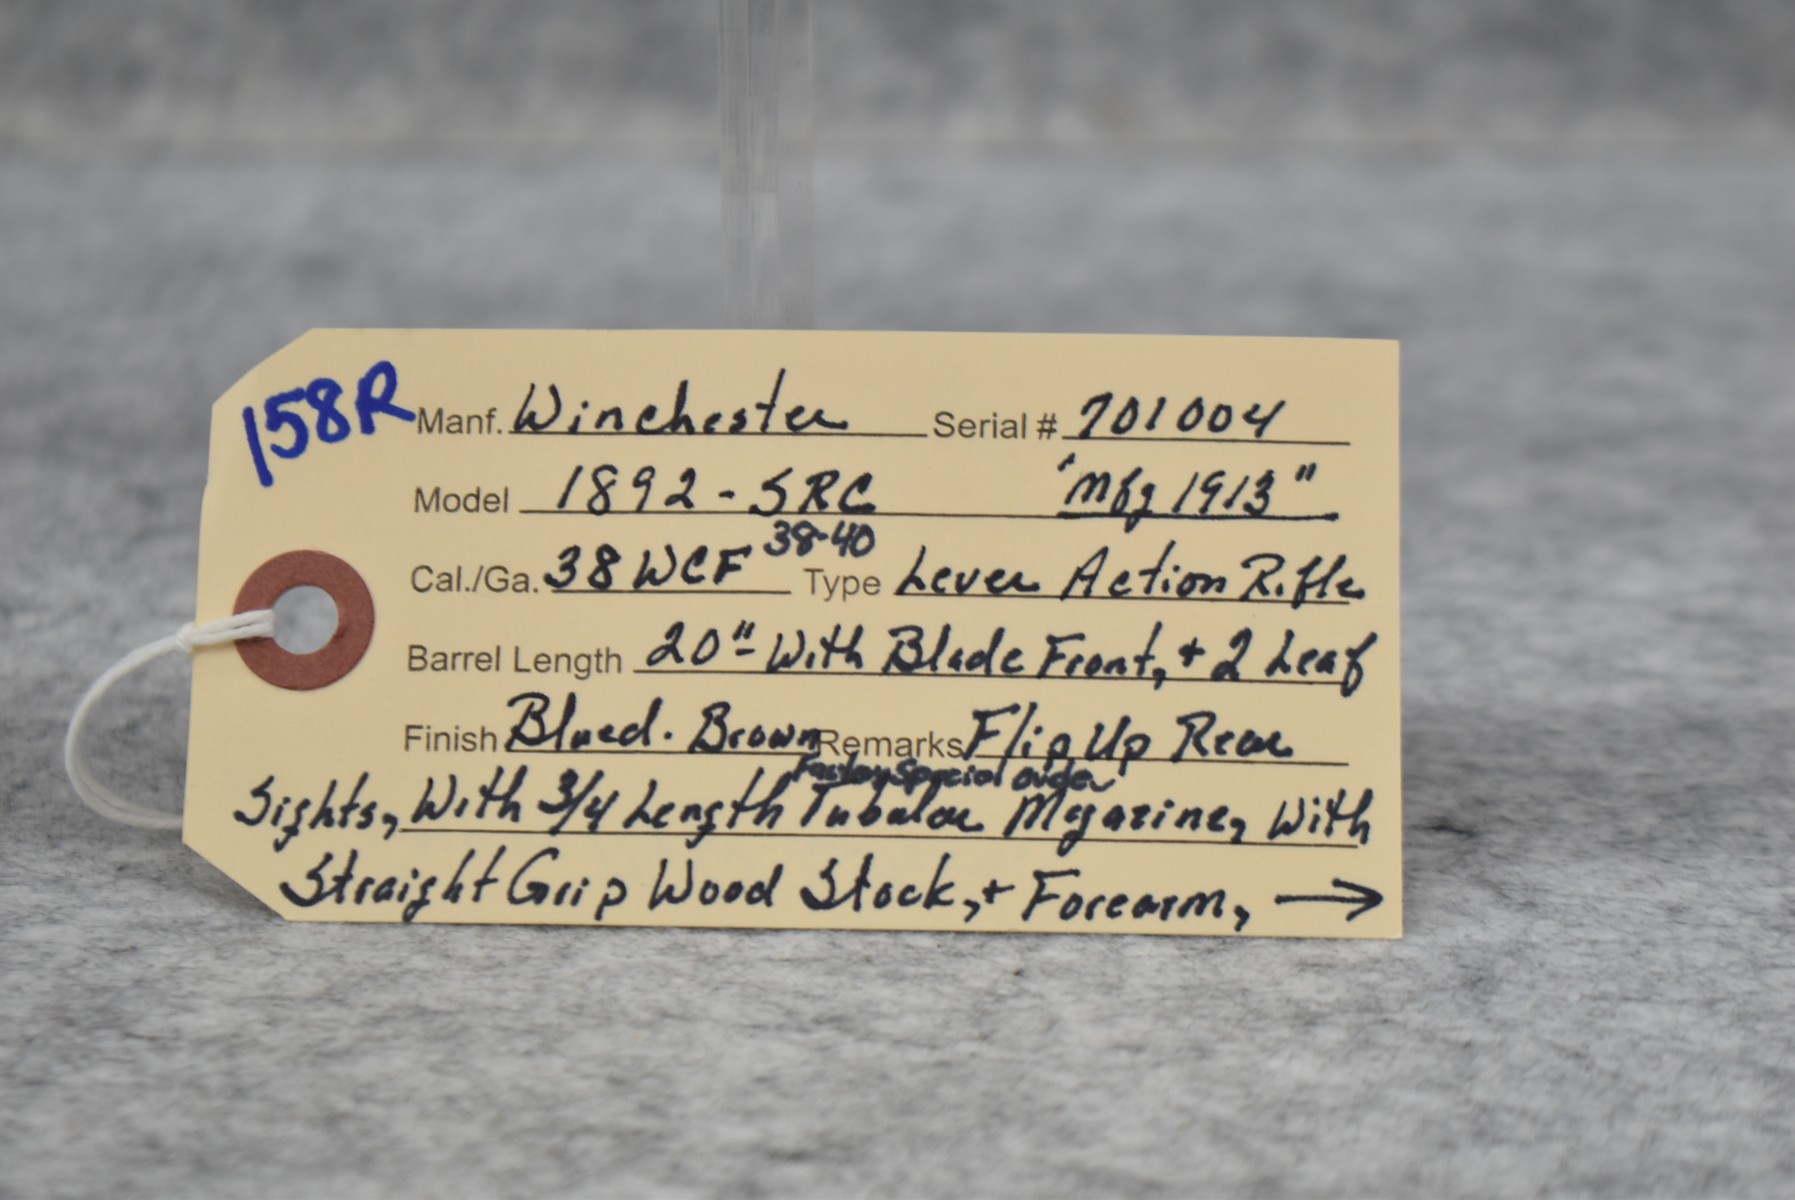 158R
Manf. Winchester Serial # 701004
Model 1892 - SRC "Mfg 1913"
38-40
Cal./Ga. 38 WCF Type Lever Action Rifle
Barrel Length 20" - With Blade Front, + 2 Leaf
Finish Blued. Brown Remarks Flip Up Rear
Factory Special order
Sights, With 3/4 Length Tubular Magazine, With
Straight Grip Wood Stock, + Forearm, →